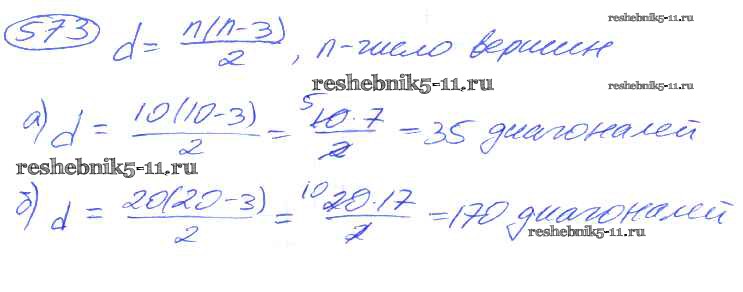 573 d = n(n-3)/2, n-число вершин
reshebnik5-11.ru
reshebnik5-11.ru
reshebnik5-11.ru
а) d = 10(10-3)/2 = 5 10·7/2 = 35 диагоналей
reshebnik5-11.ru
б) d = 20(20-3)/2 = 10 20·17/2 = 170 диагоналей
reshebnik5-11.ru